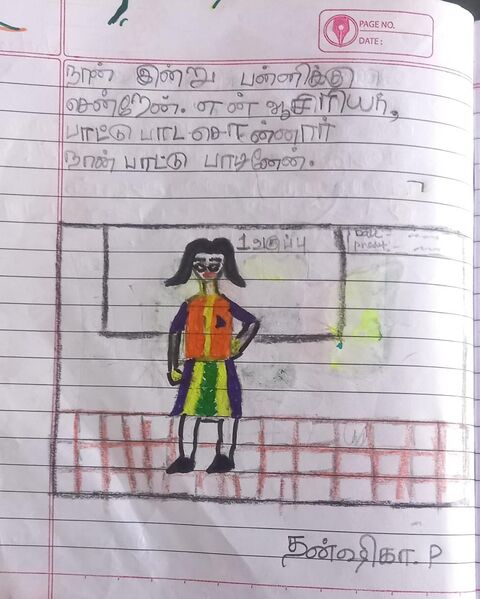 PAGE NO.
DATE:
நான் இன்று பள்ளிக்கு
சென்றேன். என் ஆசிரியர்,
பாட்டு பாட சொன்னார்
நான் பாட்டு பாடினேன்.
1 வகுப்பு
Date:-
தன்ஷிகா. P